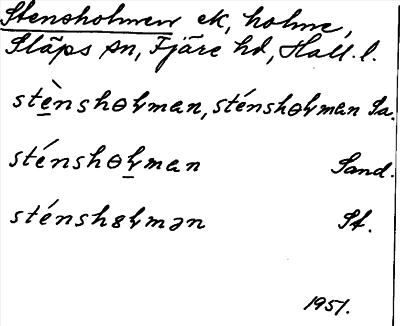 Stensholmen ek, holme,
Släps sn, Fjäre hd, Hall. l.
stè̱nshɵⱡman, sténshɵⱡman Sa.
sténshɵⱡ̱man Sand.
sténshȣⱡmən St.
1951.